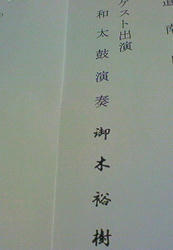 道 南
ゲスト出演
和太鼓演奏 御木裕樹